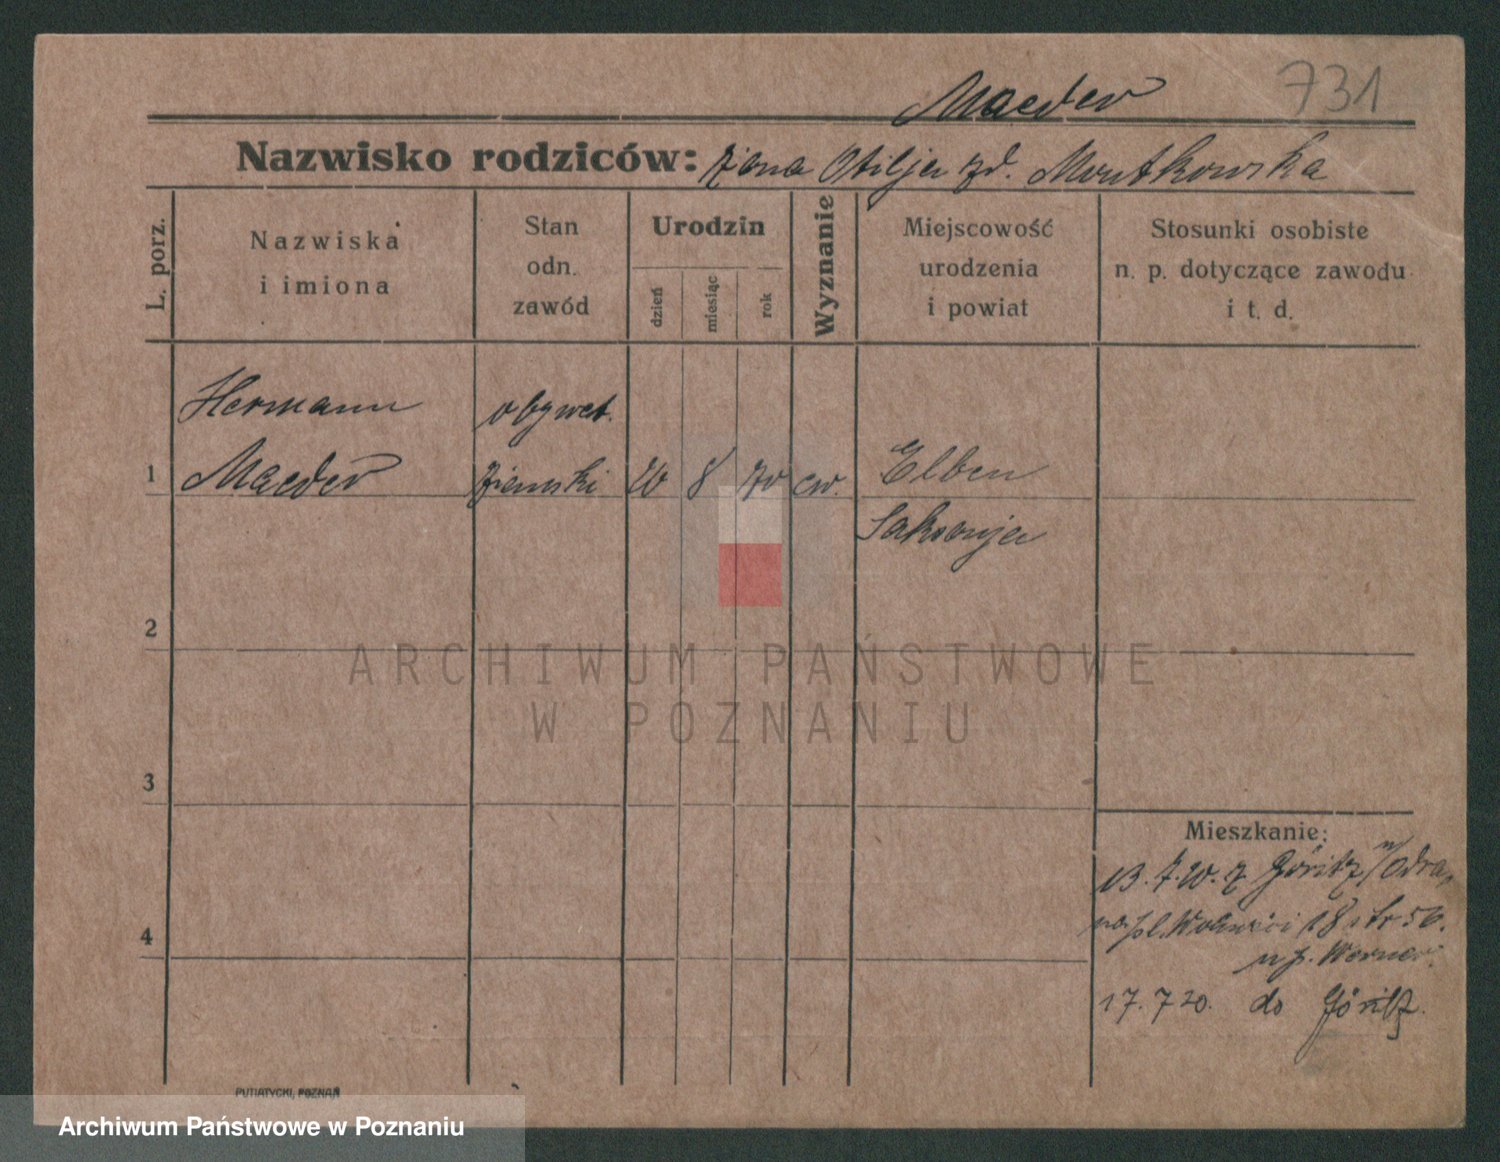 Maeder
731
Nazwisko rodziców: żona Otilja zd. Mautkowska
L. porz.
Nazwiska
i imiona
Stan
odn.
zawód
Urodzin
dzień
miesiąc
rok
Wyznanie
Miejscowość
urodzenia
i powiat
Stosunki osobiste
n. p. dotyczące zawodu
i t. d.
Hermann
obywat.
1 Maeder ziemski 20 8 70 ew. Elben
Saksonja
2
3
4
Mieszkanie:
13.7.20. z Göritz n/Odrą,
na pl. Wolności 18 str 56.
u p. Werner.
17.7.20. do Göritz.
PUTIATYCKI, POZNAŃ
ARCHIWUM PAŃSTWOWE
W POZNANIU
Archiwum Państwowe w Poznaniu